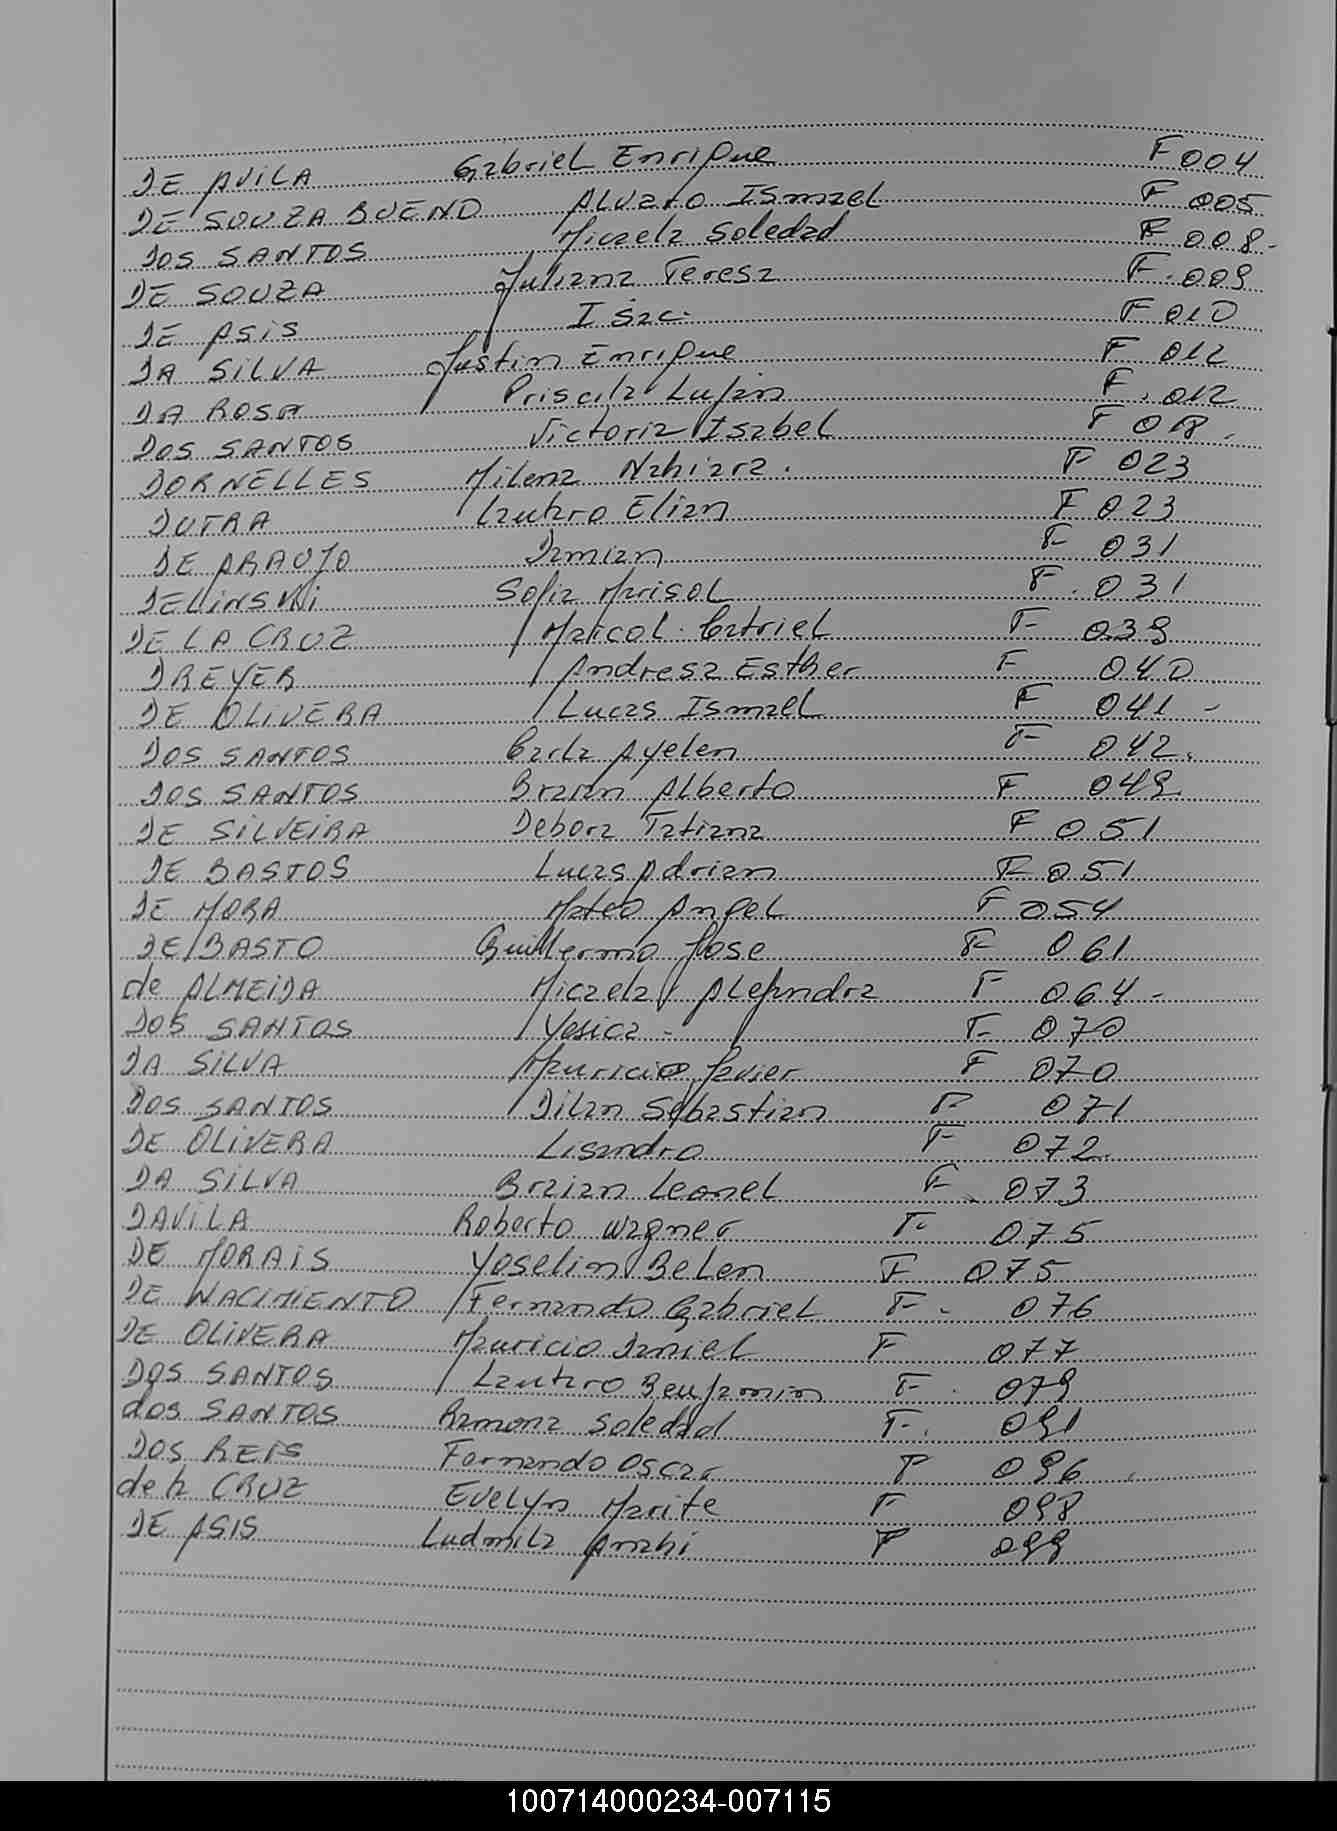 DE AVILA Gabriel Enrique F 004
DE SOUZA BUENO Alvaro Ismael F 005
DOS SANTOS Micaela Soledad F 008-
DE SOUZA Juliana Teresa F. 009
DE ASIS Isac. F 010
DA SILVA Justin Enrique F 012
DA ROSA Priscila Lujan F. 012
DOS SANTOS Victoria Isabel F 018.
DORNELLES Milena Nahiara. F 023
DUTRA Lautaro Elian F 023
DE ARAUJO Damian F 031
Sofia Marisol F. 031
DE LA CRUZ Maicol Catriel F 039
DREYER Andresa Esther F 040
DE OLIVERA Lucas Ismael F 041 -
DOS SANTOS Carla Ayelen F 042.
DOS SANTOS Braian Alberto F 049.
DE SILVEIRA Debora Tatiana F 051
DE BASTOS Lucas Adrian F 051
DE MORA Mateo Angel F 054
DE BASTO Guillermo Jose F 061
de ALMEIDA Micaela Alejandra F 064-
DOS SANTOS Yesica - F. 070
DA SILVA Mauricio Javier F 070
DOS SANTOS Dilan Sebastian F 071
DE OLIVERA Lisandro F 072.
DA SILVA Braian Leonel F. 073
DAVILA Roberto Wagner F. 075
DE MORAIS Yoselin Belen F 075
DE NACIMIENTO Fernando Gabriel F. 076
DE OLIVERA Mauricio Daniel F 077
DOS SANTOS Lautaro Benjamin F. 079
dos SANTOS Ramona Soledad F. 091
DOS REIS Fernando Oscar F 096
de la CRUZ Evelyn Marite F 098
DE ASIS Ludmila Anahi F 099
100714000234-007115